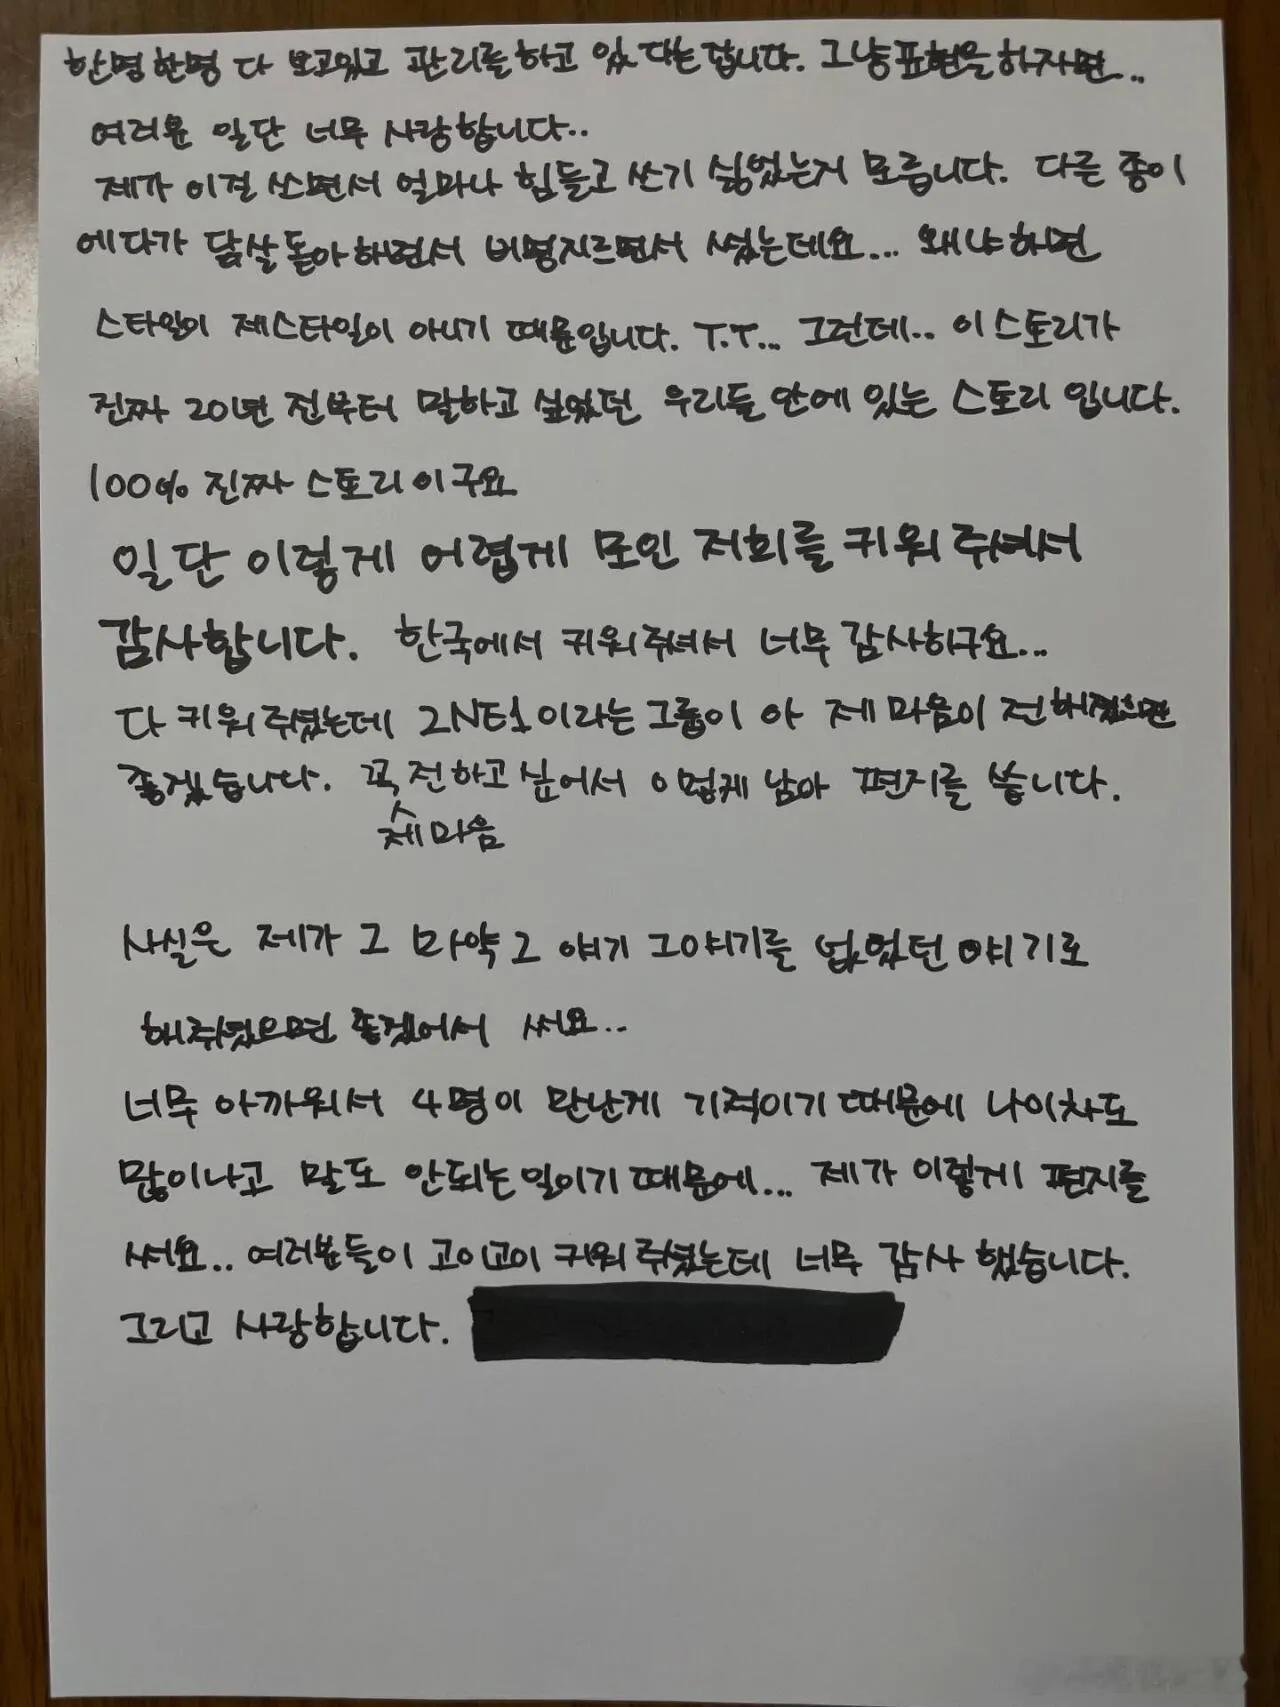 한명한명 다 보고있고 관리를하고 있 다는겁니다. 그냥표현을하자면...
여러분 일단 너무 사랑합니다..
제가 이걸 쓰면서 얼마나 힘들고 쓰기 싫었는지 모릅니다. 다른 종이
에다가 닭살돋아하면서 비명지르면서 썼는데요... 왜냐하면
스타일이 제스타일이 아니기 때문입니다. T.T... 그런데.. 이스토리가
진짜 20년 전부터 말하고 싶었던 우리들 안에 있는 스토리 입니다.
100% 진짜 스토리이구요
일단 이렇게 어렵게 모인 저희를 키워주셔서
감사합니다. 한국에서 키워주셔서 너무 감사하구요...
다 키워주셨는데 2NE1이라는그룹이 아 제 마음이 전해졌으면
좋겠습니다. 꼭 전하고싶어서 이렇게 남아 편지를 씁니다.
제마음
사실은 제가 그 마약그 얘기 그얘기를 없었던 얘기로
해주셨으면 좋겠어서 써요..
너무 아까워서 4명이 만난게 기적이기때문에 나이차도
많이나고 말도 안되는일이기때문에... 제가 이렇게 편지를
써요.. 여러분들이 고이고이 키워주셨는데 너무 감사했습니다.
그리고 사랑합니다.